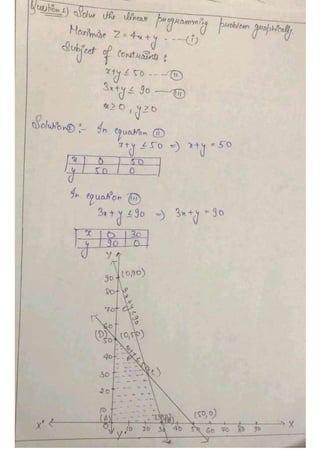 Question 1) Solve this linear programming problem graphically.
Maximise Z = 4x + y - - - (i)
Subject of constraints :
x + y ≤ 50 - - - (ii)
3x + y ≤ 90 — (iii)
x ≥ 0 , y ≥ 0
Solution :- In equation (ii)
x + y ≤ 50 ⇒ x + y = 50
x 0 50
y 50 0
In equation (iii)
3x + y ≤ 90 ⇒ 3x + y = 90
x 0 30
y 90 0
Y
90 (0,90)
80
3x+y≤90
70
60
(D) 50 (0,50)
40
30
20
10 (50,0)
X' O 10 20 30 40 50 60 70 80 90 X
Y'